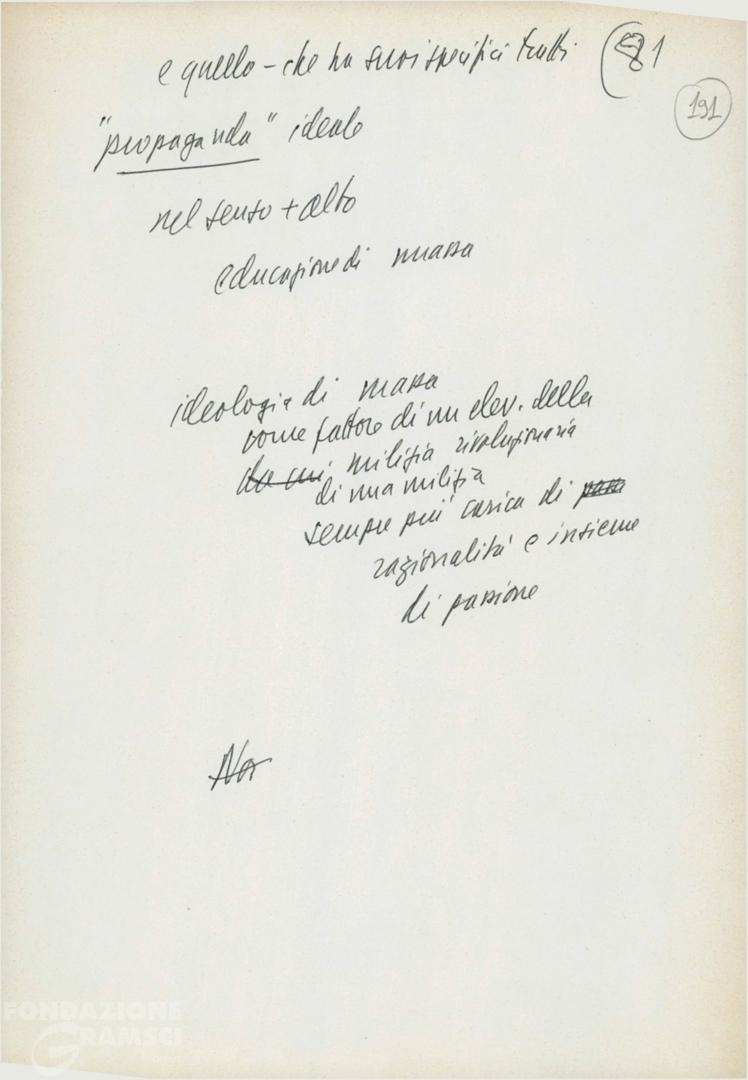 e quello – che ha suoi specifici tratti 81
191
"propaganda" ideale
nel senso + alto
educazione di massa
ideologia di massa
come fattore di un elev. della
milizia rivoluzionaria
di una milizia
sempre più carica di
razionalità e insieme
di passione
Noi
FONDAZIONE
GRAMSCI